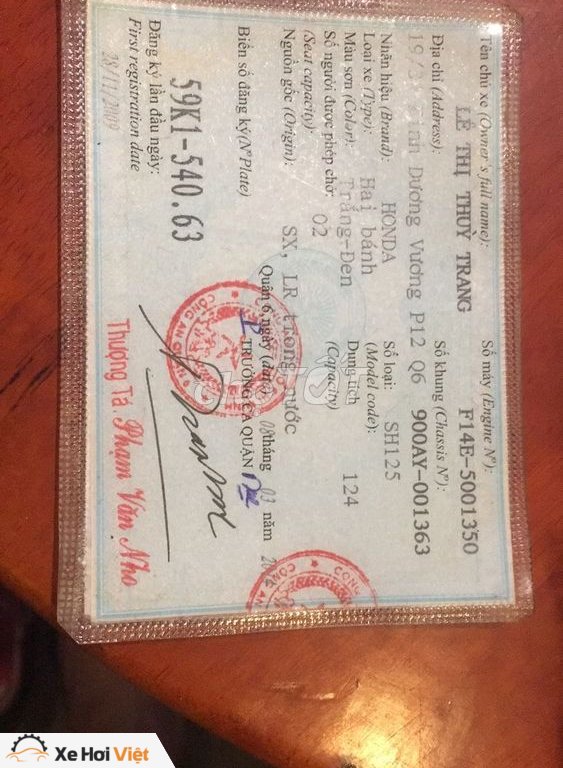 Tên chủ xe (Owner's full name):
LÊ THỊ THUỲ TRANG
Số máy (Engine N°):
F14E-5001350
Địa chỉ (Address):
Dương Vương P12 Q6
Số khung (Chassis N°):
900AY-001363
Nhãn hiệu (Brand): HONDA
Số loại: SH125
(Model code):
Loại xe (Type): Hai bánh
Màu sơn (Color): Trắng-Đen
Dung tích 124
(Capacity)
Số người được phép chở: 02
(Seat capacity)
Nguồn gốc (Origin): SX, LR trong nước
Quận 6, ngày (date) 08 tháng 03 năm
TRƯỞNG CA QUẬN
Biển số đăng ký (N° Plate)
59K1-540.63
Đăng ký lần đầu ngày:
First registration date
28/11/2009
Thượng Tá. Phạm Văn Nho
CÔNG AN
CÔNG AN
Xe Hơi Việt